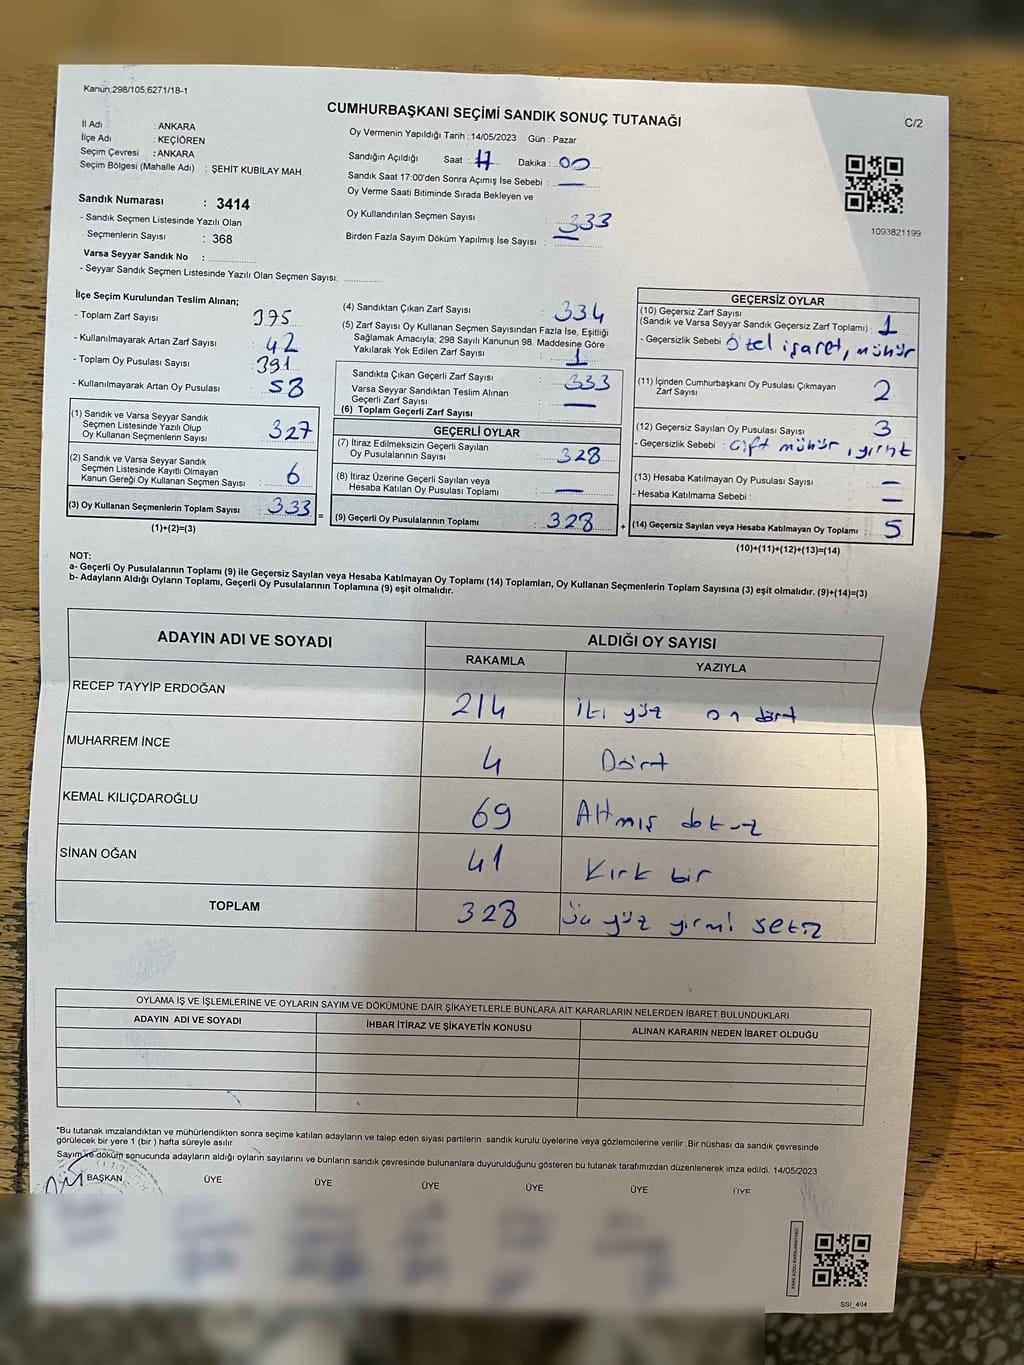 Kanun;298/105;6271/18-1
CUMHURBAŞKANI SEÇİMİ SANDIK SONUÇ TUTANAĞI
C/2
İl Adı : ANKARA
İlçe Adı : KEÇİÖREN
Seçim Çevresi : ANKARA
Seçim Bölgesi (Mahalle Adı) : ŞEHİT KUBİLAY MAH.
Sandık Numarası : 3414
- Sandık Seçmen Listesinde Yazılı Olan
Seçmenlerin Sayısı : 368
Varsa Seyyar Sandık No :
- Seyyar Sandık Seçmen Listesinde Yazılı Olan Seçmen Sayısı:
Oy Vermenin Yapıldığı Tarih :14/05/2023 Gün : Pazar
Sandığın Açıldığı Saat : 17 Dakika : 00
Sandık Saat 17:00'den Sonra Açımış İse Sebebi : —
Oy Verme Saati Bitiminde Sırada Bekleyen ve
Oy Kullandırılan Seçmen Sayısı : 333
Birden Fazla Sayım Döküm Yapılmış İse Sayısı : —
1093821199
İlçe Seçim Kurulundan Teslim Alınan;
- Toplam Zarf Sayısı : 375
- Kullanılmayarak Artan Zarf Sayısı : 42
- Toplam Oy Pusulası Sayısı : 391
- Kullanılmayarak Artan Oy Pusulası : 58
(1) Sandık ve Varsa Seyyar Sandık
Seçmen Listesinde Yazılı Olup
Oy Kullanan Seçmenlerin Sayısı : 327
(2) Sandık ve Varsa Seyyar Sandık
Seçmen Listesinde Kayıtlı Olmayan
Kanun Gereği Oy Kullanan Seçmen Sayısı : 6
(3) Oy Kullanan Seçmenlerin Toplam Sayısı : 333
(1)+(2)=(3)
(4) Sandıktan Çıkan Zarf Sayısı : 334
(5) Zarf Sayısı Oy Kullanan Seçmen Sayısından Fazla İse, Eşitliği
Sağlamak Amacıyla; 298 Sayılı Kanunun 98. Maddesine Göre
Yakılarak Yok Edilen Zarf Sayısı : 1
Sandıkta Çıkan Geçerli Zarf Sayısı : 333
Varsa Seyyar Sandıktan Teslim Alınan
Geçerli Zarf Sayısı : —
(6) Toplam Geçerli Zarf Sayısı :
GEÇERLİ OYLAR
(7) İtiraz Edilmeksizin Geçerli Sayılan
Oy Pusulalarının Sayısı : 328
(8) İtiraz Üzerine Geçerli Sayılan veya
Hesaba Katılan Oy Pusulası Toplamı : —
= (9) Geçerli Oy Pusulalarının Toplamı : 328
GEÇERSİZ OYLAR
(10) Geçersiz Zarf Sayısı
(Sandık ve Varsa Seyyar Sandık Geçersiz Zarf Toplamı) : 1
- Geçersizlik Sebebi : Özel işaret, mühür
(11) İçinden Cumhurbaşkanı Oy Pusulası Çıkmayan
Zarf Sayısı : 2
(12) Geçersiz Sayılan Oy Pusulası Sayısı : 3
- Geçersizlik Sebebi : Çift mühür, yırtık
(13) Hesaba Katılmayan Oy Pusulası Sayısı : —
- Hesaba Katılmama Sebebi : —
+ (14) Geçersiz Sayılan veya Hesaba Katılmayan Oy Toplamı : 5
(10)+(11)+(12)+(13)=(14)
NOT:
a- Geçerli Oy Pusulalarının Toplamı (9) ile Geçersiz Sayılan veya Hesaba Katılmayan Oy Toplamı (14) Toplamları, Oy Kullanan Seçmenlerin Toplam Sayısına (3) eşit olmalıdır. (9)+(14)=(3)
b- Adayların Aldığı Oyların Toplamı, Geçerli Oy Pusulalarının Toplamına (9) eşit olmalıdır.
ADAYIN ADI VE SOYADI ALDIĞI OY SAYISI
RAKAMLA YAZIYLA
RECEP TAYYİP ERDOĞAN 214 İki yüz on dört
MUHARREM İNCE 4 Dört
KEMAL KILIÇDAROĞLU 69 Altmış dokuz
SİNAN OĞAN 41 Kırk bir
TOPLAM 328 üç yüz yirmi sekiz
OYLAMA İŞ VE İŞLEMLERİNE VE OYLARIN SAYIM VE DÖKÜMÜNE DAİR ŞİKAYETLERLE BUNLARA AİT KARARLARIN NELERDEN İBARET BULUNDUKLARI
ADAYIN ADI VE SOYADI İHBAR İTİRAZ VE ŞİKAYETİN KONUSU ALINAN KARARIN NEDEN İBARET OLDUĞU
*Bu tutanak imzalandıktan ve mühürlendikten sonra seçime katılan adayların ve talep eden siyasi partilerin sandık kurulu üyelerine veya gözlemcilerine verilir .Bir nüshası da sandık çevresinde
görülecek bir yere 1 (bir ) hafta süreyle asılır.
Sayım ve döküm sonucunda adayların aldığı oyların sayılarını ve bunların sandık çevresinde bulunanlara duyurulduğunu gösteren bu tutanak tarafımızdan düzenlenerek imza edildi. 14/05/2023
BAŞKAN ÜYE ÜYE ÜYE ÜYE ÜYE ÜYE
SSİ_404